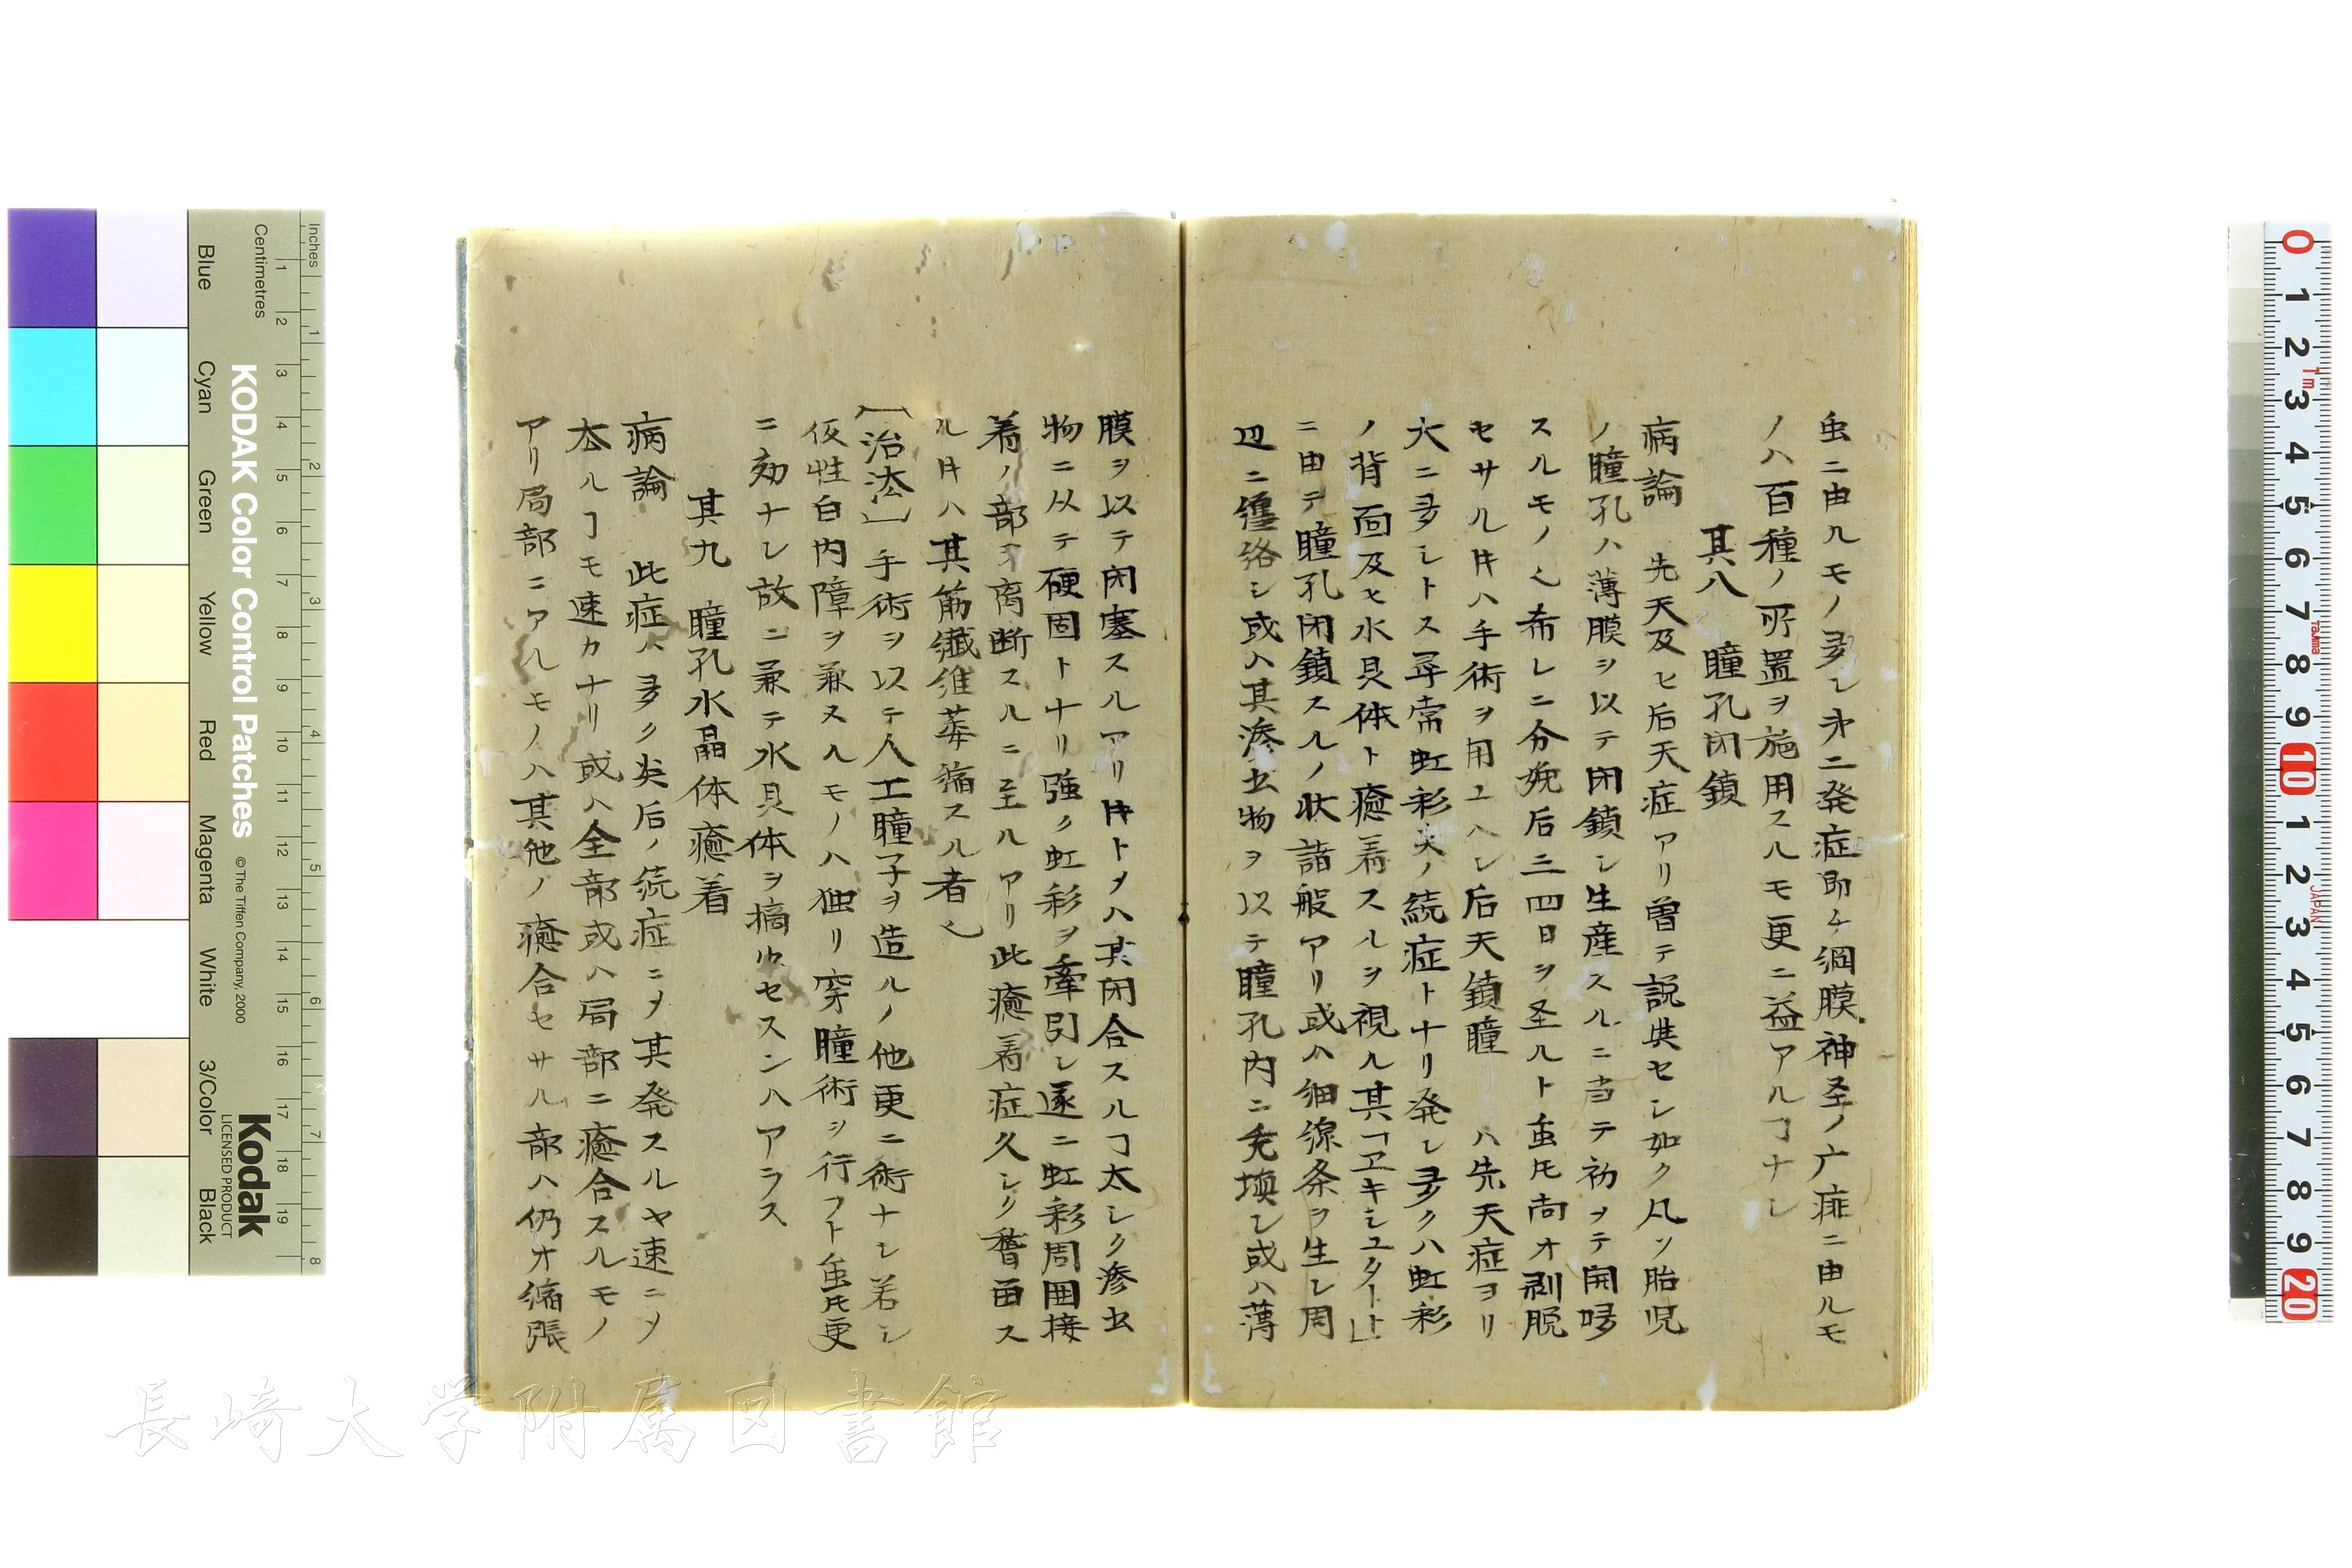 虫ニ由ルモノ多シ第二発症即チ網膜神圣ノ广痱ニ由ルモ
ノハ百種ノ所置ヲ施用スルモ更ニ益アルヿナシ
其八 瞳孔閉鎖
病論 先天及ヒ后天症アリ曽テ説典セシ如ク凡ソ胎児
ノ瞳孔ハ薄膜ヲ以テ閉鎖シ生産スルニ当テ初メテ開
スルモノ也希レニ分娩后三四日ヲ圣ルト虽𪜈尚オ剥脱
セサル𪜈ハ手術ヲ用ユヘシ后天鎖瞳 ハ先天症ヨリ
大ニ多シトス尋常虹彩炎ノ続症トナリ発シ多クハ虹彩
ノ背面及ヒ水晶体ト癒着スルヲ視ル其「ヱキシユタート」
ニ由テ瞳孔閉鎖スルノ状諸般アリ或ハ細線条ヲ生シ周
辺ニ纏絡シ或ハ其滲出物ヲ以テ瞳孔内ニ充填シ或ハ薄
膜ヲ以テ閉塞スルアリ𪜈トメハ其閉合スルヿ太シク滲出
物ニ从テ硬固トナリ強ク虹彩ヲ牽引シ遂ニ虹彩周囲接
着ノ部ヲ离断スルニ至ルアリ此癒着症久シク稽留ス
ル𪜈ハ其筋繊維萎縮スル者也
〔治法〕手術ヲ以テ人工瞳子ヲ造ルノ他更ニ術ナシ若シ
仮性白内障ヲ兼ヌルモノハ独リ穿瞳術ヲ行フト虽𪜈更
ニ効ナシ故ニ兼テ水晶体ヲ摘出セスンハアラス
其九 瞳孔水晶体癒着
病論 此症ハ多ク炎后ノ続症ニメ其発スルヤ速ニメ
太ルヿモ速カナリ或ハ全部或ハ局部ニ癒合スルモノ
アリ局部ニアルモノハ其他ノ癒合セサル部ハ仍オ縮張
長崎大学附属図書館
KODAK Color Control Patches
© The Tiffen Company, 2000
Kodak
LICENSED PRODUCT
Inches
Centimetres
Blue
Cyan
Green
Yellow
Red
Magenta
White
3/Color
Black
1 2 3 4 5 6 7 8 9 10 11 12 13 14 15 16 17 18 19
1 2 3 4 5 6 7 8
0 1 2 3 4 5 6 7 8 9 10 1 2 3 4 5 6 7 8 9 20
Tajima
JAPAN